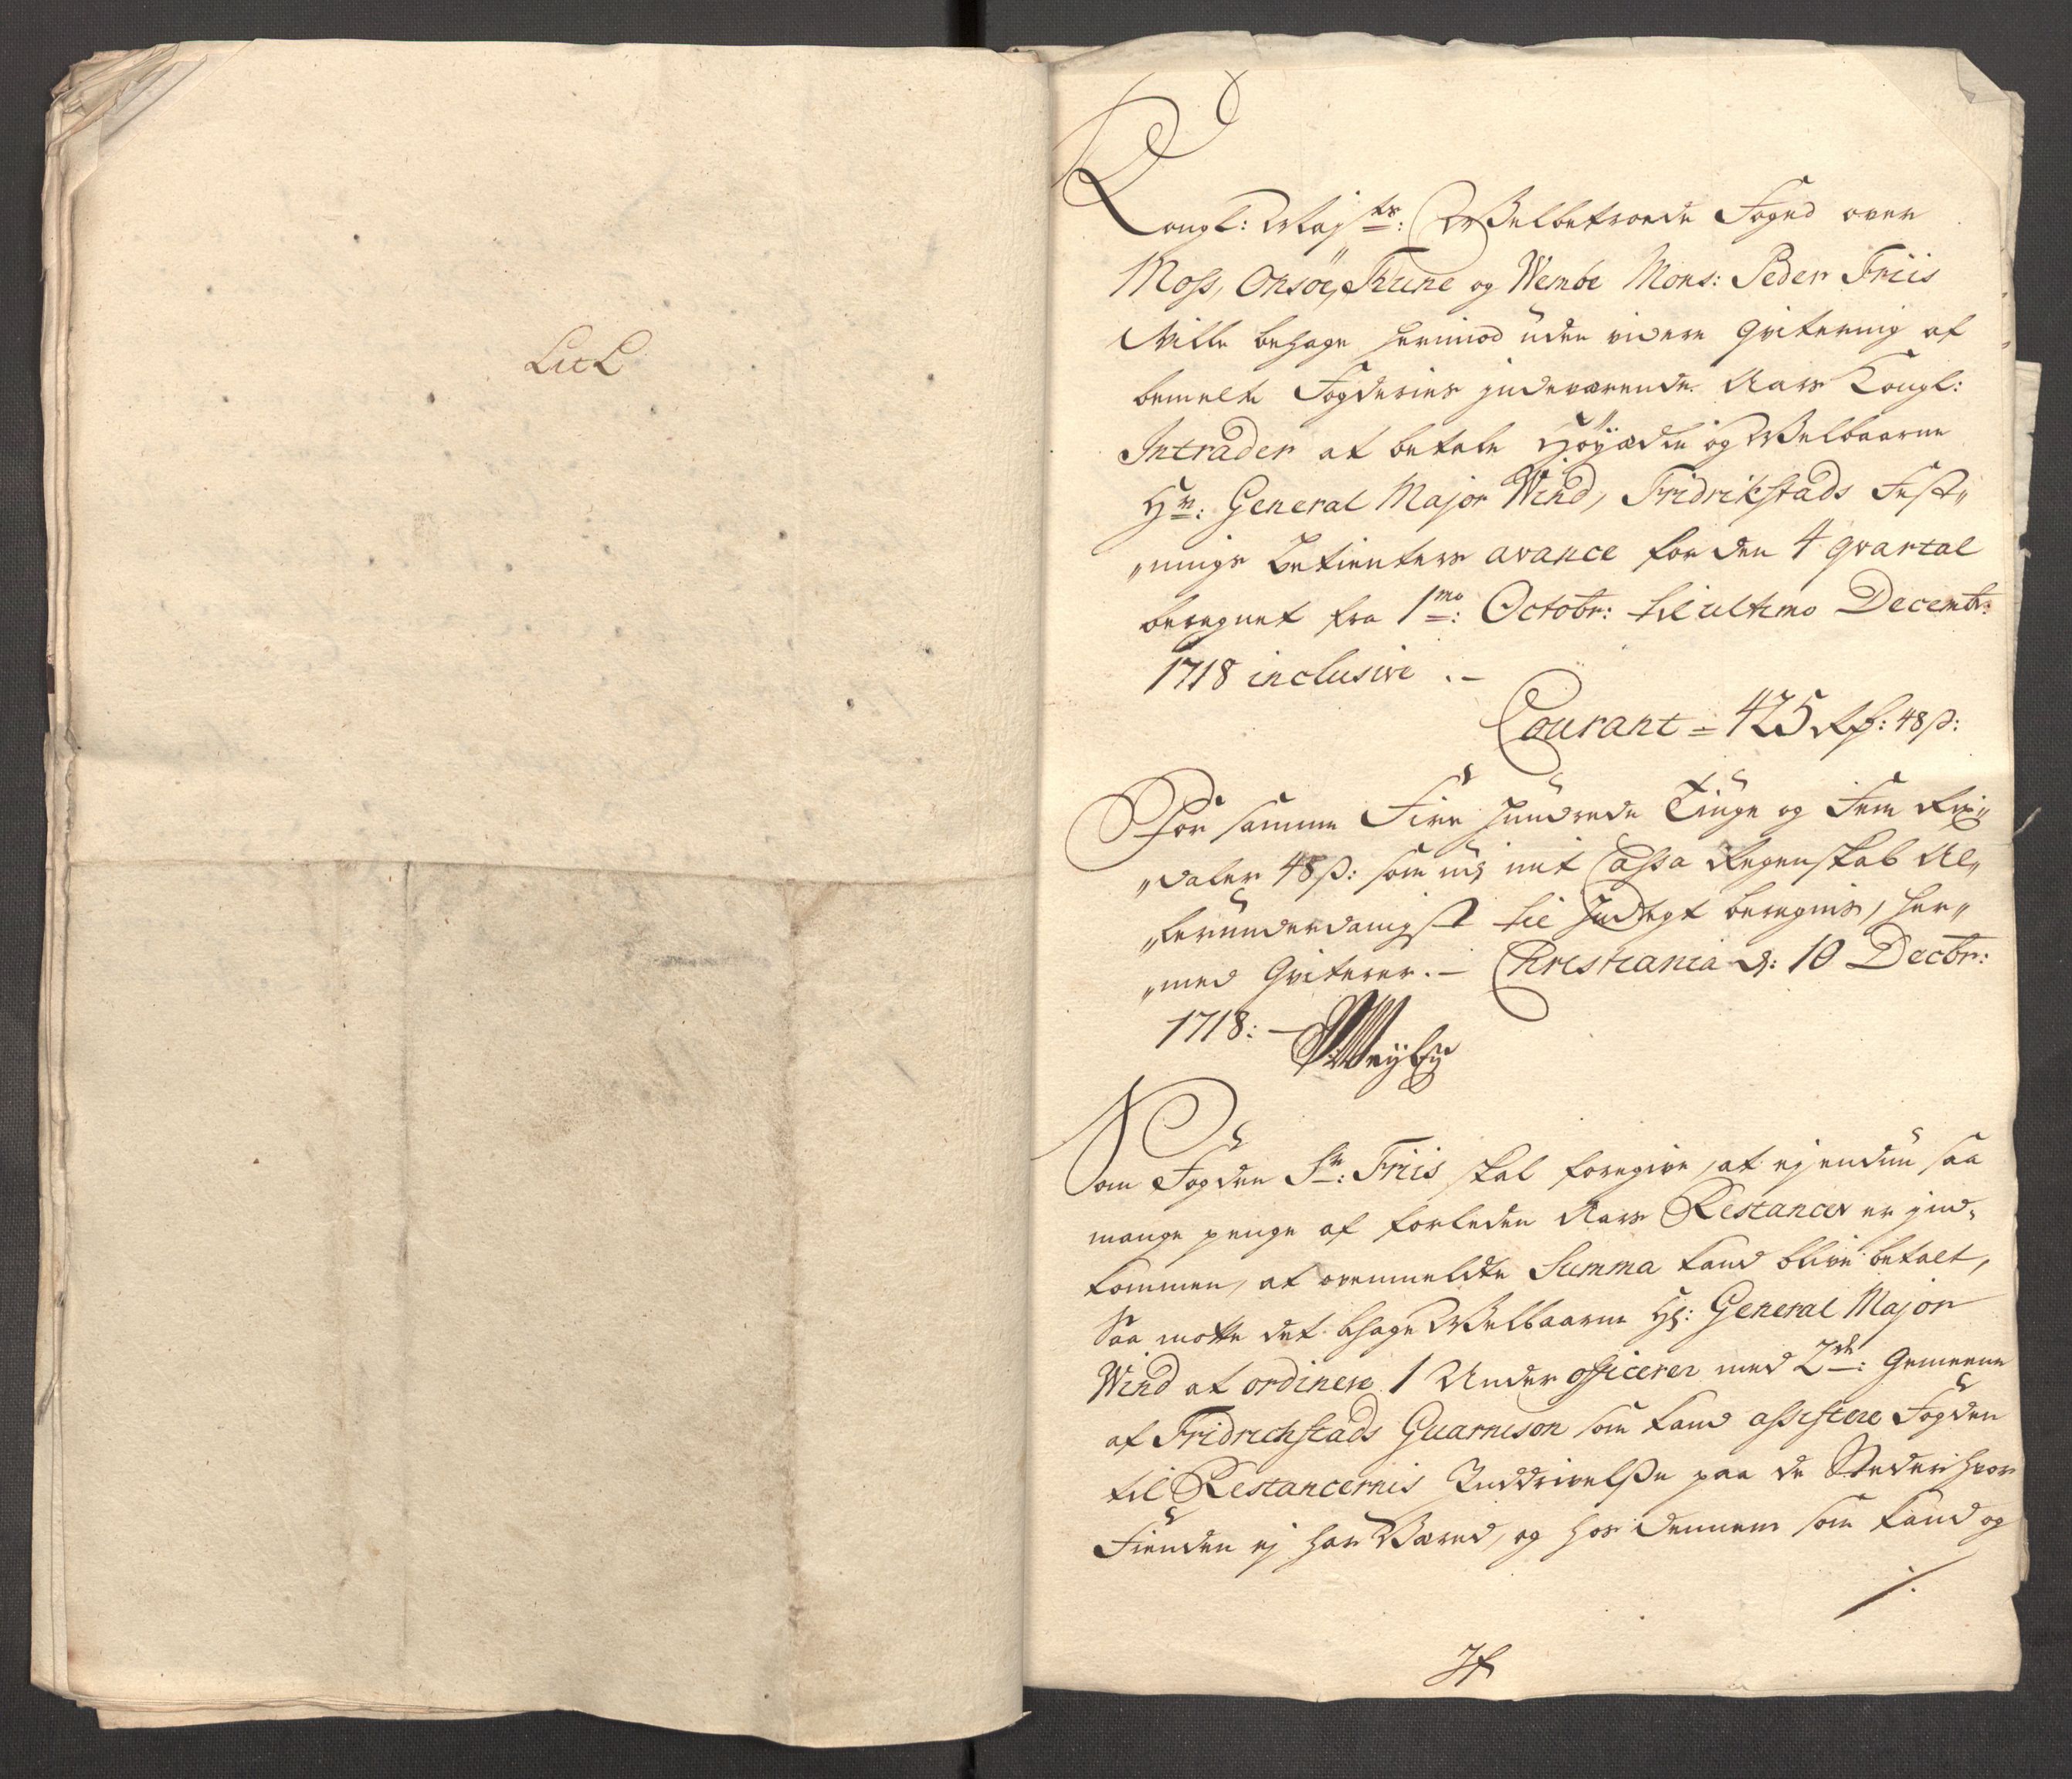 Lit L
Kongl: Maj.ts: Welbetroede Foged over
Moss, Onsöe, Thune og Wembe Mons: Peder Friis
Wille behage herimod uden videre qvitering af
bemelte Fogderies indeværende Aars Kongl:
Intrader at betale Höyædle og Welbaarne
Hr: General Major Wind, Fridrikstads Fæst„
„nings Betienters avance for den 4 qvartal
beregnet fra 1mo: Octobr: til ultimo Decembr:
1718 inclusive .–
Courant = 425 Rd: 48 s:
For samme Fire hundrede Tiuge og Fem Rix„
„daler 48 s: som udj mit Cassa Regenskab Al„
„lerunderdanigst til Indtegt beregnis, her„
„med Qviterer.– Christiania d: 10 Decbr:
1718: –
Som Fogden Sr: Friis skal foregive, at ej endnu saa
mange penge af forleden Aars Restancer er ind„
kommen, at ovenmeldte Summa kand blive betalt,
Saa motte det bhage Welbaarne Hr: General Major
Wind at ordinere 1 Under officerer med 2de: Gemeene
af Fridrichstads Guarnison som kand assistere Fogden
til Restancernis Inddrivelsse paa de Steder hvor
Fienden ej har Været, og hos dennem som kand og
./.